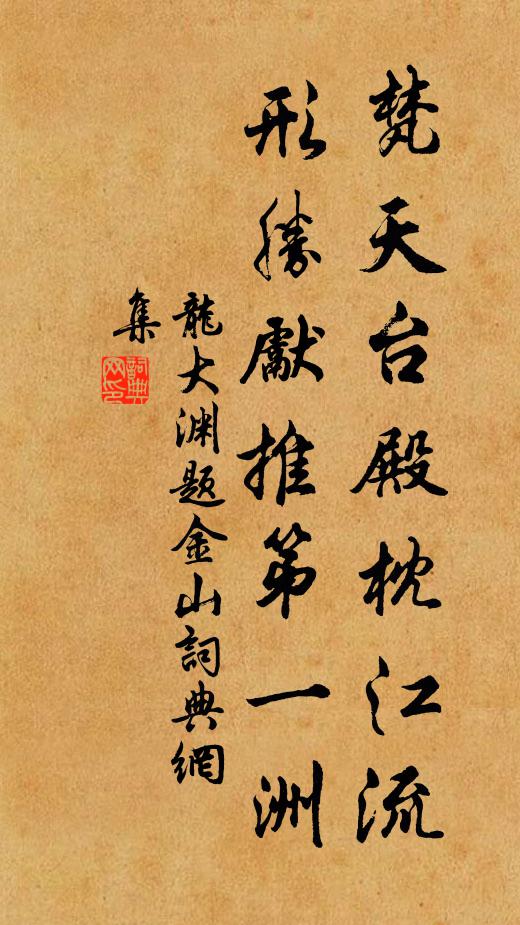 梵天台殿枕江流
形勝獻推第一洲
龍大渊題金山詞典網
集
詞典
网印